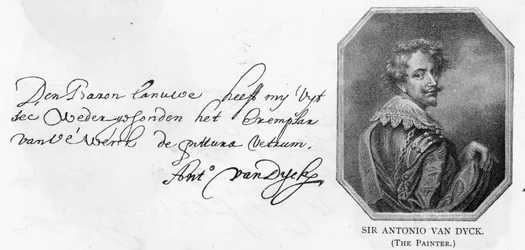 Den Baron Canuwe heeft mij Uyt
see Weder gesonden het Exemplar
van Ue Werck de pittura Veterum.
Antº van Dyck
SIR ANTONIO VAN DYCK.
(THE PAINTER.)